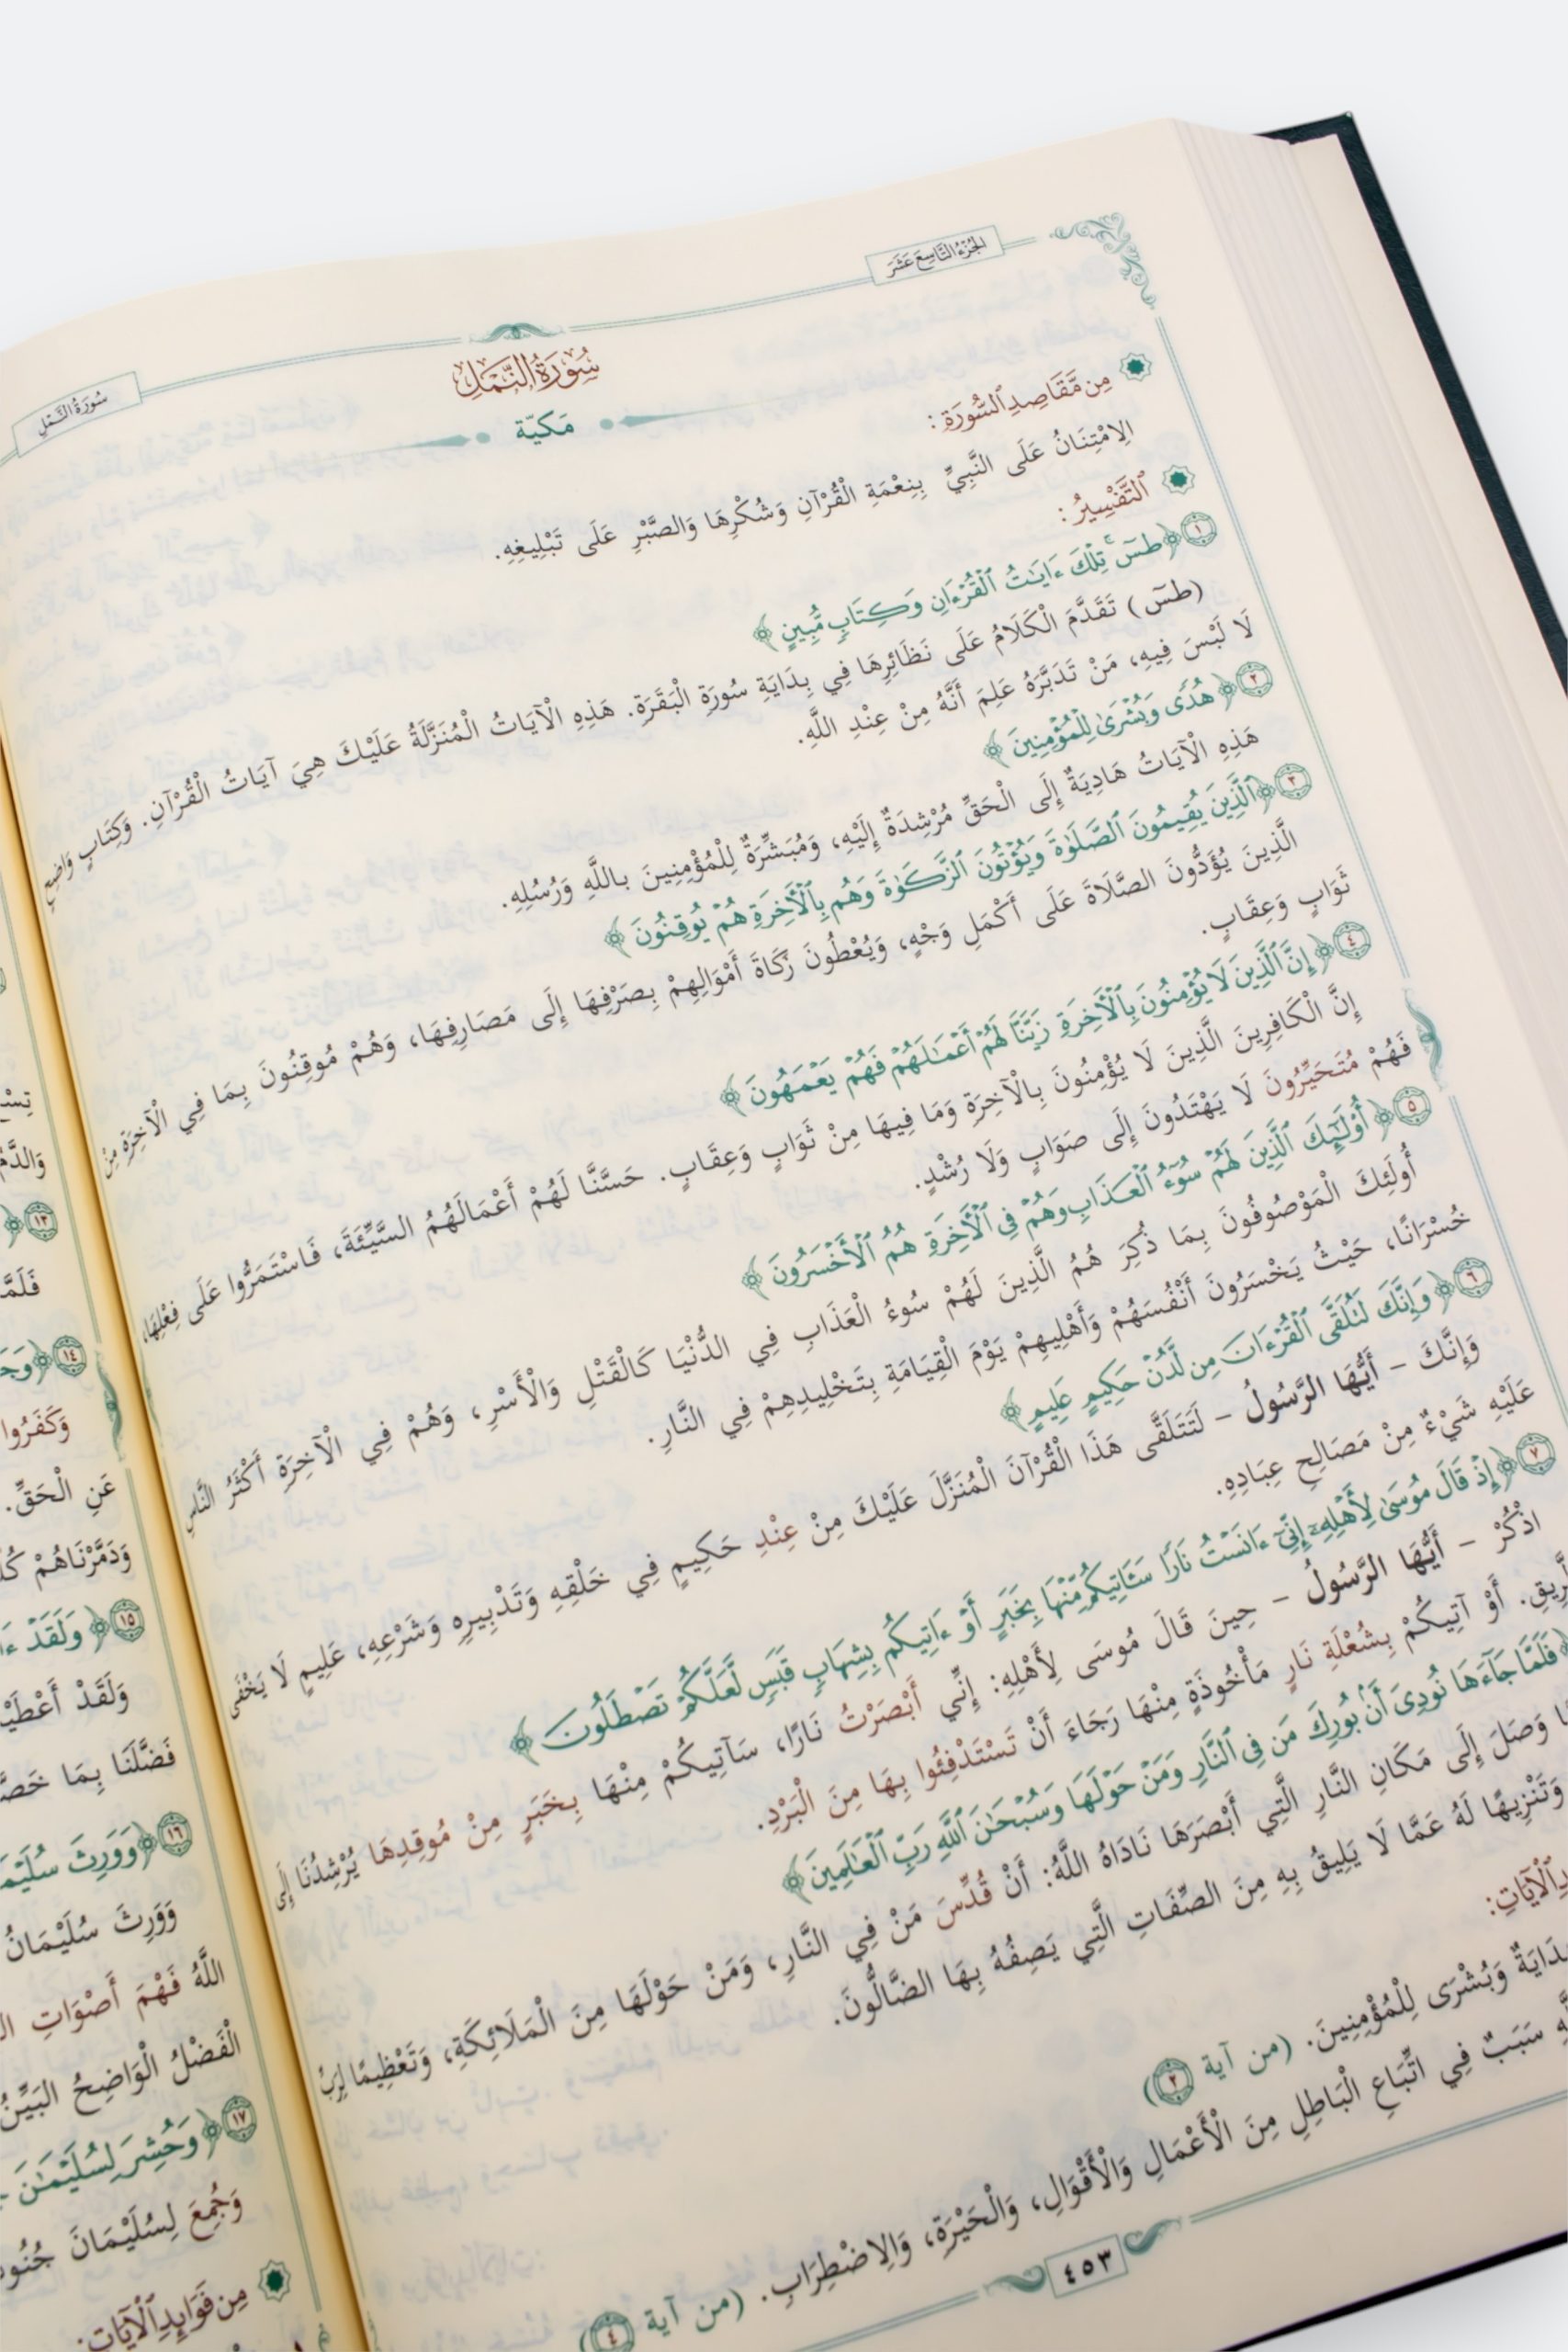 الجُزْءُ التَّاسِعَ عَشَرَ
سُورَةُ النَّمْلِ
سُورَةُ النَّمْلِ
مَكِيّة
مِن مَّقَاصِدِ ٱلسُّورَةِ:
الِامْتِنَانُ عَلَى النَّبِيِّ بِنِعْمَةِ الْقُرْآنِ وَشُكْرِهَا وَالصَّبْرِ عَلَى تَبْلِيغِهِ.
ٱلتَّفْسِيرُ:
١ ﴿طسٓ ۚ تِلْكَ ءَايَٰتُ ٱلْقُرْءَانِ وَكِتَابٍ مُّبِينٍ﴾
(طسٓ) تَقَدَّمَ الْكَلَامُ عَلَى نَظَائِرِهَا فِي بِدَايَةِ سُورَةِ الْبَقَرَةِ. هَذِهِ الْآيَاتُ الْمُنَزَّلَةُ عَلَيْكَ هِيَ آيَاتُ الْقُرْآنِ. وَكِتَابٍ وَاضِحٍ
لَا لَبْسَ فِيهِ، مَنْ تَدَبَّرَهُ عَلِمَ أَنَّهُ مِنْ عِنْدِ اللَّهِ.
٢ ﴿هُدًى وَبُشْرَىٰ لِلْمُؤْمِنِينَ﴾
هَذِهِ الْآيَاتُ هَادِيَةٌ إِلَى الْحَقِّ مُرْشِدَةٌ إِلَيْهِ، وَمُبَشِّرَةٌ لِلْمُؤْمِنِينَ بِاللَّهِ وَرُسُلِهِ.
٣ ﴿ٱلَّذِينَ يُقِيمُونَ ٱلصَّلَوٰةَ وَيُؤْتُونَ ٱلزَّكَوٰةَ وَهُم بِٱلْأَخِرَةِ هُمْ يُوقِنُونَ﴾
الَّذِينَ يُؤَدُّونَ الصَّلَاةَ عَلَى أَكْمَلِ وَجْهٍ، وَيُعْطُونَ زَكَاةَ أَمْوَالِهِمْ بِصَرْفِهَا إِلَى مَصَارِفِهَا، وَهُمْ مُوقِنُونَ بِمَا فِي الْآخِرَةِ مِنْ
ثَوَابٍ وَعِقَابٍ.
٤ ﴿إِنَّ ٱلَّذِينَ لَا يُؤْمِنُونَ بِٱلْأَخِرَةِ زَيَّنَّا لَهُمْ أَعْمَٰلَهُمْ فَهُمْ يَعْمَهُونَ﴾
إِنَّ الْكَافِرِينَ الَّذِينَ لَا يُؤْمِنُونَ بِالْآخِرَةِ وَمَا فِيهَا مِنْ ثَوَابٍ وَعِقَابٍ. حَسَّنَّا لَهُمْ أَعْمَالَهُمُ السَّيِّئَةَ، فَاسْتَمَرُّوا عَلَى فِعْلِهَا،
فَهُمْ مُتَحَيِّرُونَ لَا يَهْتَدُونَ إِلَى صَوَابٍ وَلَا رُشْدٍ.
٥ ﴿أُوْلَٰٓئِكَ ٱلَّذِينَ لَهُمْ سُوٓءُ ٱلْعَذَابِ وَهُمْ فِى ٱلْأَخِرَةِ هُمُ ٱلْأَخْسَرُونَ﴾
أُولَئِكَ الْمَوْصُوفُونَ بِمَا ذُكِرَ هُمُ الَّذِينَ لَهُمْ سُوءُ الْعَذَابِ فِي الدُّنْيَا كَالْقَتْلِ وَالْأَسْرِ، وَهُمْ فِي الْآخِرَةِ أَكْثَرُ النَّاسِ
خُسْرَانًا، حَيْثُ يَخْسَرُونَ أَنْفُسَهُمْ وَأَهْلِيهِمْ يَوْمَ الْقِيَامَةِ بِتَخْلِيدِهِمْ فِي النَّارِ.
٦ ﴿وَإِنَّكَ لَتُلَقَّى ٱلْقُرْءَانَ مِن لَّدُنْ حَكِيمٍ عَلِيمٍ﴾
وَإِنَّكَ - أَيُّهَا الرَّسُولُ - لَتَتَلَقَّى هَذَا الْقُرْآنَ الْمُنَزَّلَ عَلَيْكَ مِنْ عِنْدِ حَكِيمٍ فِي خَلْقِهِ وَتَدْبِيرِهِ وَشَرْعِهِ، عَلِيمٍ لَا يَخْفَى
عَلَيْهِ شَيْءٌ مِنْ مَصَالِحِ عِبَادِهِ.
٧ ﴿إِذْ قَالَ مُوسَىٰ لِأَهْلِهِۦٓ إِنِّىٓ ءَانَسْتُ نَارًا سَـَٔاتِيكُم مِّنْهَا بِخَبَرٍ أَوْ ءَاتِيكُم بِشِهَابٍ قَبَسٍ لَّعَلَّكُمْ تَصْطَلُونَ﴾
اذْكُرْ - أَيُّهَا الرَّسُولُ - حِينَ قَالَ مُوسَى لِأَهْلِهِ: إِنِّي أَبْصَرْتُ نَارًا، سَآتِيكُمْ مِنْهَا بِخَبَرٍ مِنْ مُوقِدِهَا يُرْشِدُنَا إِلَى
أَوْ آتِيكُمْ بِشُعْلَةِ نَارٍ مَأْخُوذَةٍ مِنْهَا رَجَاءَ أَنْ تَسْتَدْفِئُوا بِهَا مِنَ الْبَرْدِ.
﴿فَلَمَّا جَآءَهَا نُودِىَ أَنۢ بُورِكَ مَن فِى ٱلنَّارِ وَمَنْ حَوْلَهَا وَسُبْحَٰنَ ٱللَّهِ رَبِّ ٱلْعَٰلَمِينَ﴾
وَصَلَ إِلَى مَكَانِ النَّارِ الَّتِي أَبْصَرَهَا نَادَاهُ اللَّهُ: أَنْ قُدِّسَ مَنْ فِي النَّارِ، وَمَنْ حَوْلَهَا مِنَ الْمَلَائِكَةِ، وَتَعْظِيمًا لِرَبِّ
وَتَنْزِيهًا لَهُ عَمَّا لَا يَلِيقُ بِهِ مِنَ الصِّفَاتِ الَّتِي يَصِفُهُ بِهَا الضَّالُّونَ.
ٱلْآيَاتِ:
وَبُشْرَى لِلْمُؤْمِنِينَ. (من آية ٢)
سَبَبٌ فِي اتِّبَاعِ الْبَاطِلِ مِنَ الْأَعْمَالِ وَالْأَقْوَالِ، وَالْحَيْرَةِ، وَالِاضْطِرَابِ. (من آية ٤)
٤٥٣
وَالدَّمَ
١٣ ﴿
فَلَمَّا
١٤ ﴿
وَكَفَرُوا
عَنِ الْحَقِّ.
وَدَمَّرْنَاهُمْ
١٥ ﴿وَلَقَدْ
وَلَقَدْ أَعْطَيْ
فَضَّلَنَا بِمَا
١٦ ﴿وَوَرِثَ سُلَيْمَ
وَوَرِثَ سُلَيْمَانُ
اللَّهُ فَهْمَ أَصْوَاتِ
الْفَضْلُ الْوَاضِحُ الْبَيِّنُ
١٧ ﴿وَحُشِرَ لِسُلَيْمَٰنَ
وَجُمِعَ لِسُلَيْمَانَ جُنُو
مِن فَوَائِدِ ٱلْآيَاتِ: